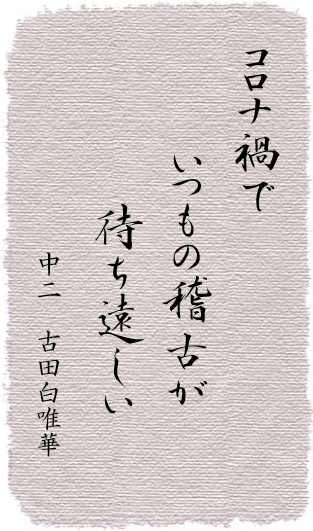 コロナ禍で
いつもの稽古が
待ち遠しい
中二　古田白唯華